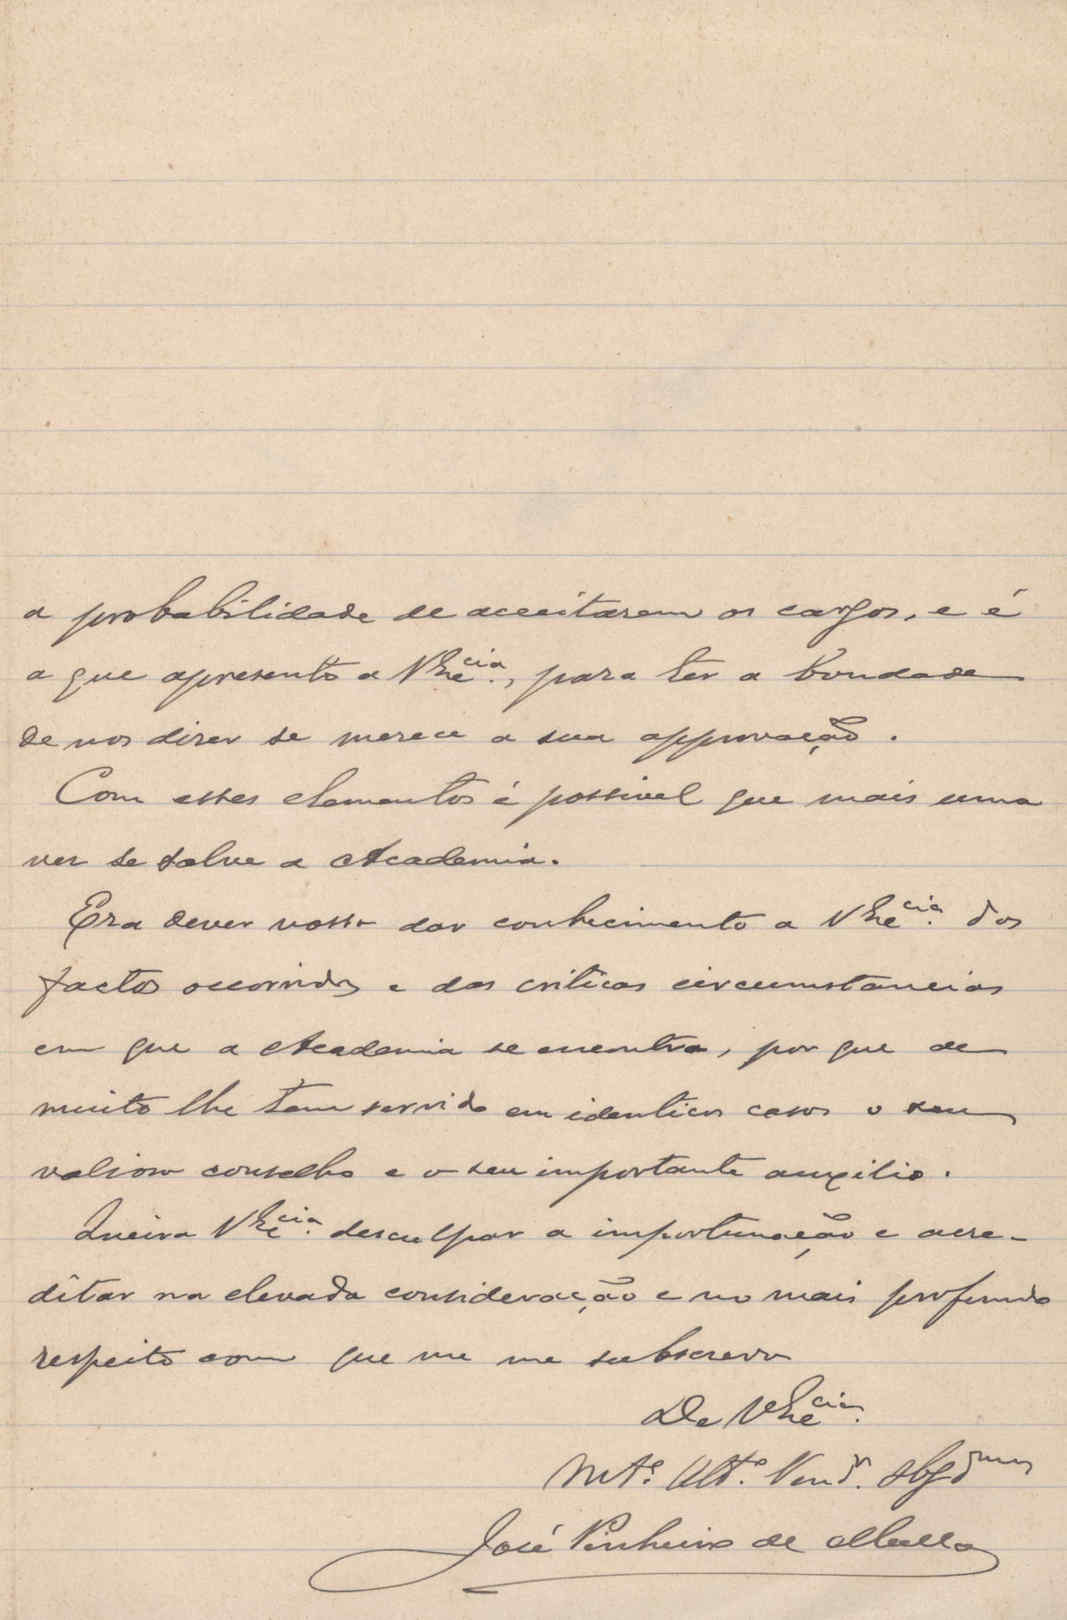 a probabilidade de acceitarem os cargos, e é
a que apresento a V. Exc.cia, para ter a bondade
de nos dizer se merece a sua approvação.
Com estes elementos é possivel que mais uma
vez se salve a Academia.
Era dever nosso dar conhecimento a V. Exc.cia dos
factos occorridos e das criticas circumstancias
em que a Academia se encontra, por que de
muito lhe tem servido em identicos casos o seu
valioso conselho e o seu importante auxilio.
Queira V. Exc.cia desculpar a importunação e acre-
ditar na elevada consideração e no mais profundo
respeito com que me me subscrevo
De V. Exc.cia
Mt.º Att.º Vend.r Obgdmo
José Pinheiro de Mello